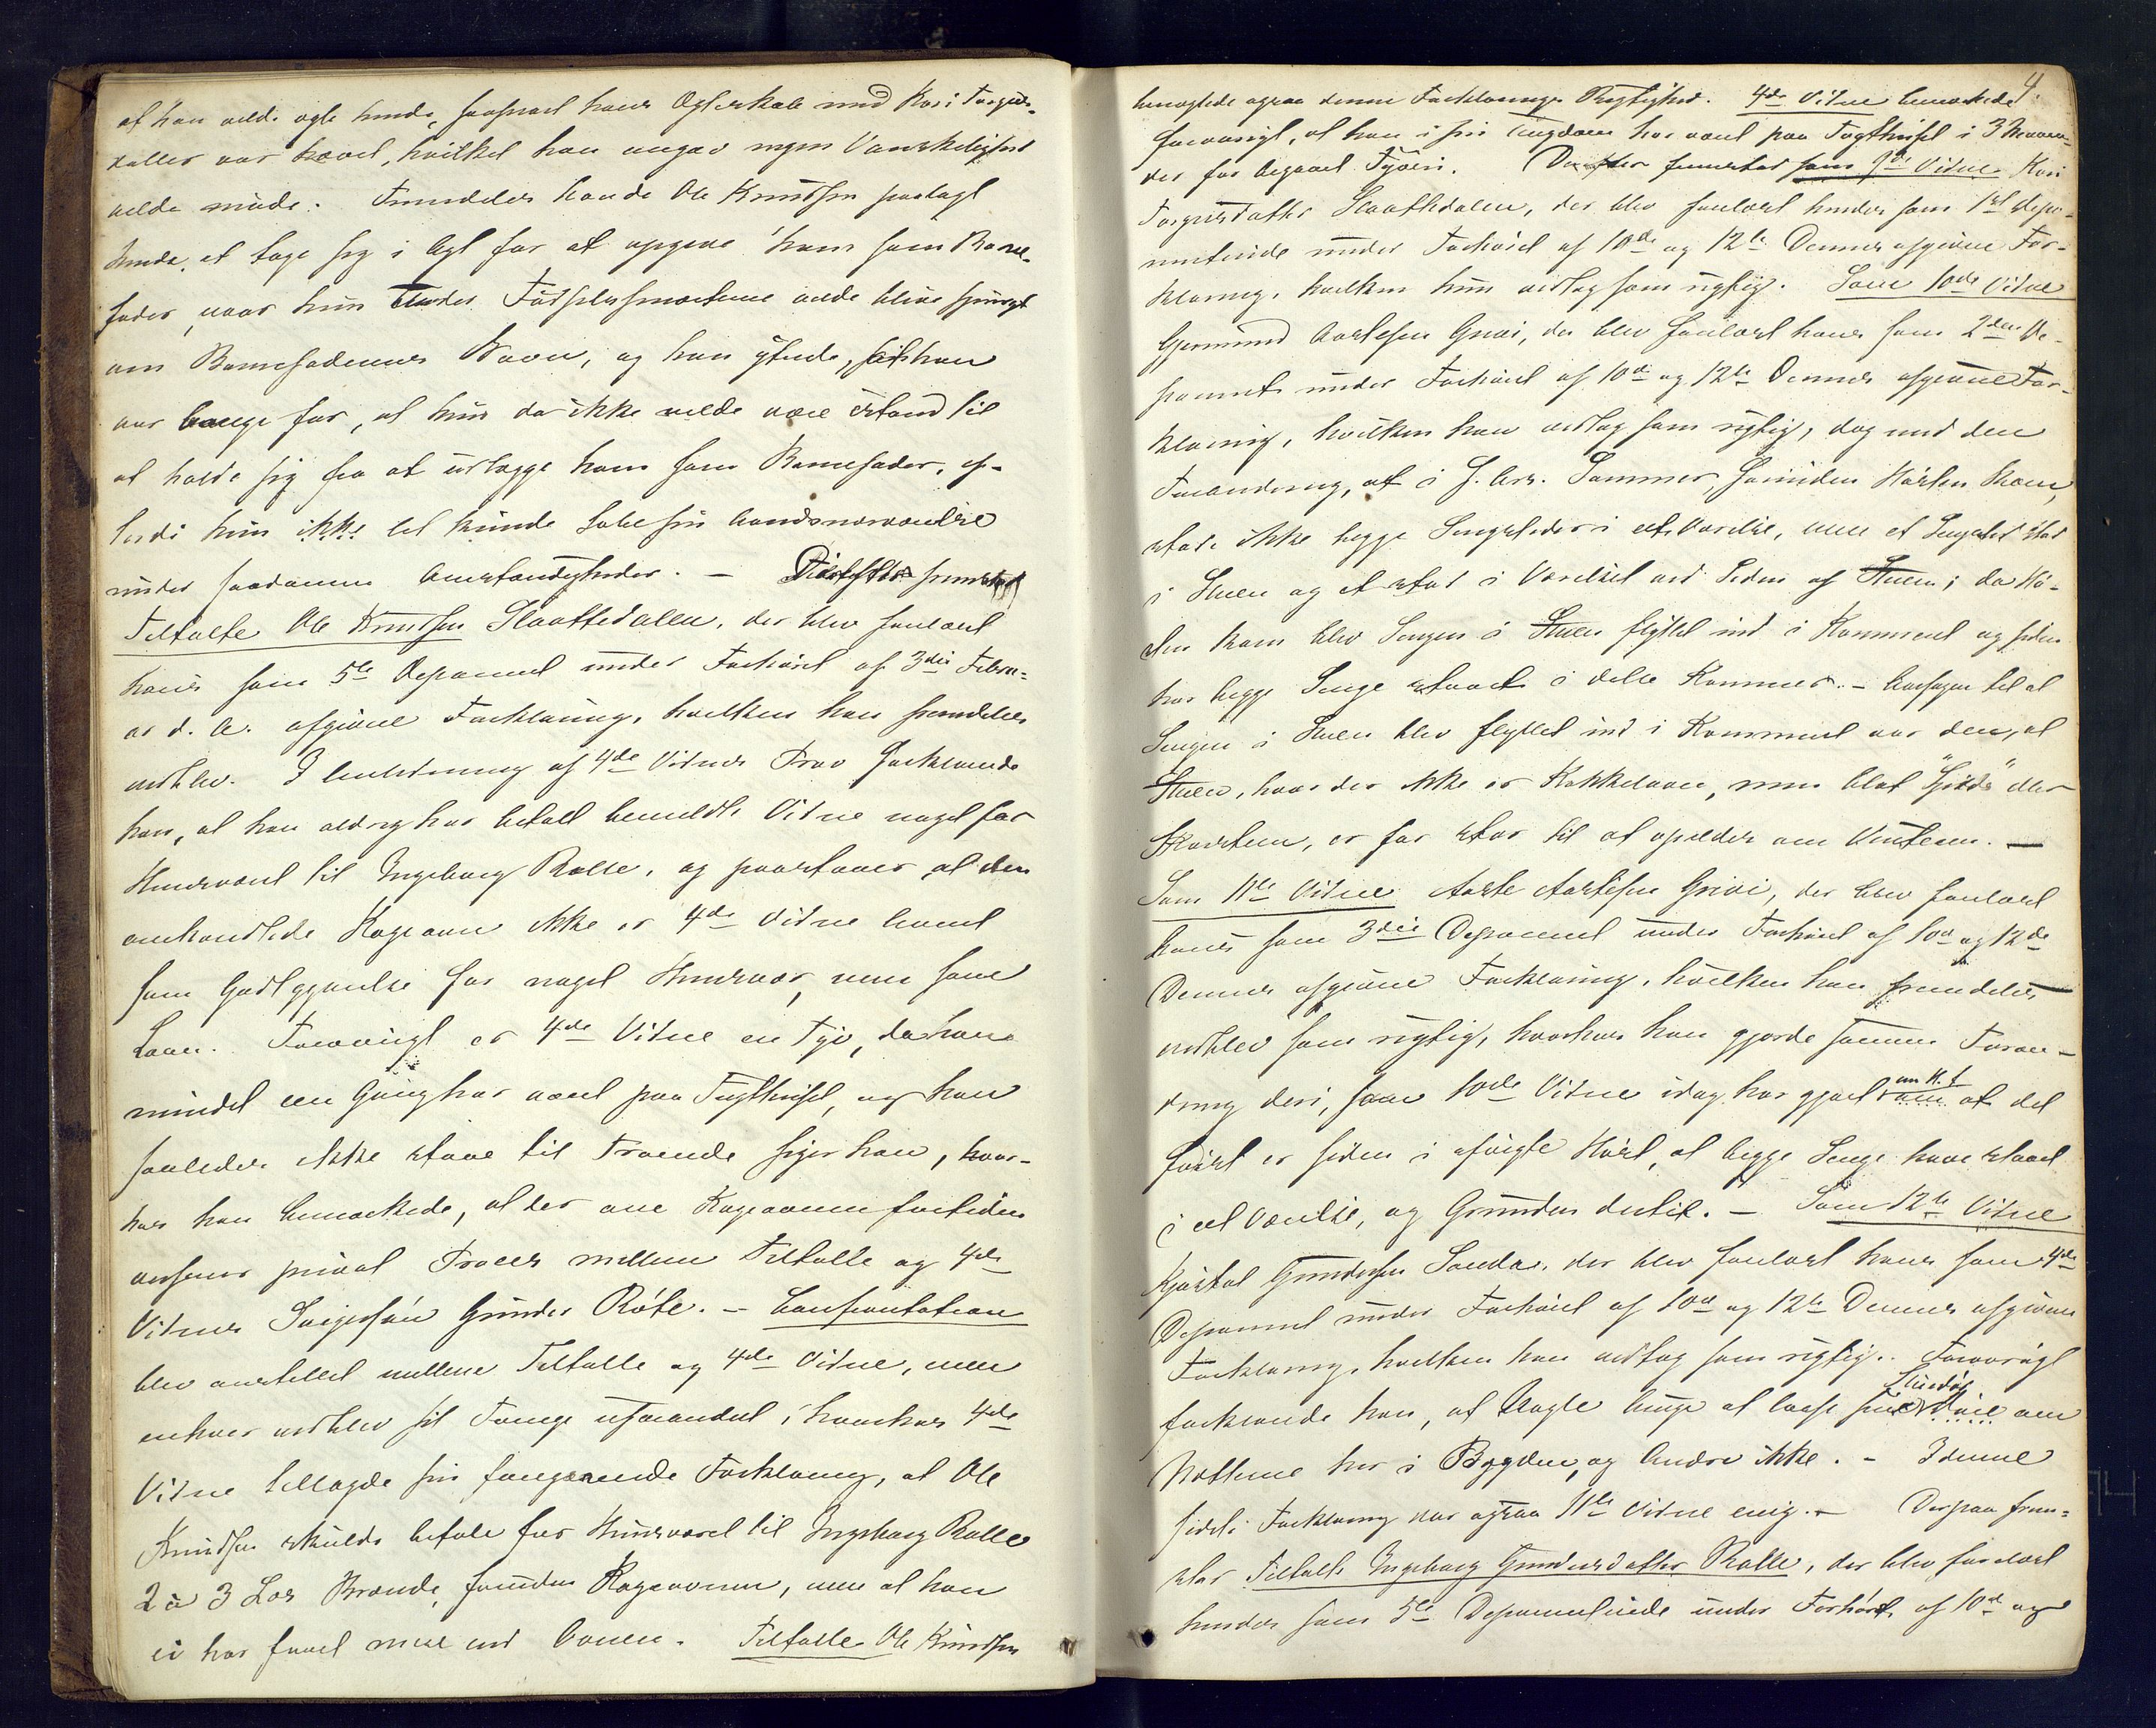 at han vilde ægte hende, saasnart hans Ægteskab med Kari Torgus-
datter var hævet, hvilket han angav ingen Vanskelighed
vilde møde. Fremdeles havde Ole Knudsen paalagt
hende, at tage sig i Agt for at opgive ham som Barne-
fader, naar hun under Fødselssmerterne vilde blive spurgt
om Barnefaderens Navn, og han ytrede, at han
var bange for, at hun da ikke vilde være istand til
at holde sig fra at udlægge ham som Barnefader, ef-
terdi hun ikke let kunde tabe sin Aandsnærværelse
under saadanne Omstændigheder. — Derefter fremstod
Tiltalte Ole Knudsen Slaattedalen, der blev forelæst
hans som 5te Deponent under Forhøret af 3die Febru-
ar d. A. afgivne Forklaring, hvilken han fremdeles
vedblev. I Anledning af 4de Vidnes Prov forklarede
han, at han aldrig har betalt bemeldte Vidne noget for
Huusvært til Ingeborg Rolle, og paastaaer, at den
omhandlede Kogeovn ikke er 4de Vidne levert
som Godtgjørelse for noget Huusvær, men som
Laan. Forøvrigt er 4de Vidne en Tyv, da han
mindst een Gang har været paa Tugthuset, og han
saaledes ikke staae til Troende siger han, hvor-
hos han bemærkede, at der om Kogeovnen fortiden
verserer privat Proces mellem Tiltalte og 4de
Vidnes Svigersøn Gunder Røte. — Confrontation
blev anstillet mellem Tiltalte og 4de Vidne, men
enhver vedblev sit Udsagn uforandret, hvorhos 4de
Vidne tillagde sin foregaaende Forklaring, at Ole
Knudsen skulde betale for Huusværet til Ingeborg Rolle
2 à 3 Læs Brænde, foruden Kogeovnen, men at han
ei har faaet mere end Ovnen. Tiltalte Ole Knudsen
4.
benægtede ogsaa denne Forklarings Rigtighed. 4de Vidne bemærkede
forøvrigt, at han i sin Ungdom har været paa Tugthuset i 3 Maane-
der for begaaet Tyveri. Derefter fremstod som 9de Vidne Kari
Torgusdatter Slaattedalen, der blev forelæst hendes som 1st Depo-
nentinde under Forhøret af 10de og 12te Dennes afgivne For-
klaring, hvilken hun vedtog som rigtig. Som 10de Vidne
Gjermund Aaslesen Grivi, der blev forelæst hans som 2den De-
ponent under Forhøret af 10de og 12te Dennes afgivne For-
klaring, hvilken han vedtog som rigtig, dog med den
Forandring, at i f. Aars Sommer, førinden Høsten kom,
stod ikke begge Sengesteder i eet Værelse, men et Sengested stod
i Stuen og et stod i Værelset ved Siden af Stuen; da Hø-
sten kom blev Sengen i Stuen flyttet ind i Kammeret og siden
har begge Senge staaet i dette Kammer. — Aarsagen til at
Sengen i Stuen blev flyttet ind i Kammeret var den, at
Stuen, hvor der ikke er Kakkelovn, men blot "Gride" eller
Skorsten, er for stor til at opvarmes om Vinteren. —
Som 11te Vidne Aasle Aaslesen Grivi, der blev forelæst
hans som 3die Deponent under Forhøret af 10de og 12de
Dennes afgivne Forklaring, hvilken han fremdeles
vedblev som rigtig, hvorhos han gjorde samme Foran-
dring deri, som 10de Vidne idag har gjort om at det
først er siden i afvigte Høst, at begge Senge have staaet
i eet Værelse, og Grunden dertil. — Som 12te Vidne
Kjøstol Gundersen Sanda, der blev forelæst hans som 4de
Deponent under Forhøret af 10de og 12te Dennes afgivne
Forklaring, hvilken han vedtog som rigtig. Forøvrigt
forklarede han, at Nogle bruge at laase sine Døre om
Nætterne her i Bygden, og Andre ikke. — I denne
sidste Forklaring var ogsaa 11te Vidne enig. — Derpaa frem-
stod Tiltalte Ingeborg Gundersdatter Rolle, der blev forelæst
hendes som 5te Deponentinde under Forhøret af 10de og